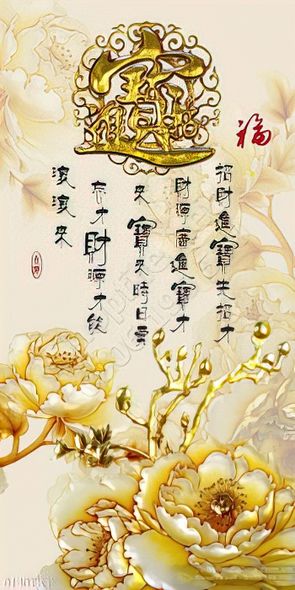 招財進寶
福
招財進寶先招才
財源廣進寶才
來寶來時日莫
忘才財源才能
滾滾來